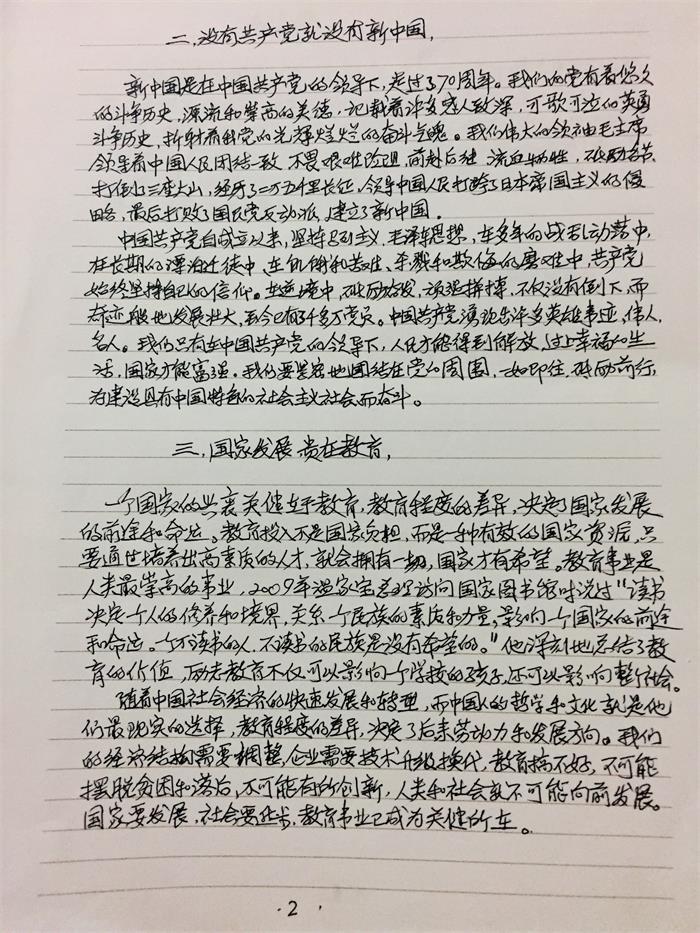 二，没有共产党就没有新中国，
新中国是在中国共产党的领导下，走过了70周年。我们的党有着悠久
的斗争历史，源流和崇高的美德，记载着许多感人致深，可歌可泣的英勇
斗争历史，折射着我党的光辉灿烂的奋斗气魄。我们伟大的领袖毛主席
领导着中国人民团结一致，不畏艰难险阻，前赴后继，流血牺牲，砥励名节，
打倒三座大山，经历了二万五千里长征，领导中国人民打跨了日本帝国主义的侵
略，最后打败了国民党反动派，建立了新中国。
中国共产党自成立以来，坚持马列主义，毛泽东思想，在多年的战乱动荡中，
在长期的漂泊迁徒中，在饥饿和苦难、杀戮和欺侮的磨难中，共产党
始终坚持自己的信仰。在逆境中，砥励奋发，顽强拼搏，不仅没有倒下，而
奇迹般地发展壮大，至今已有千多万党员。中国共产党涌现出许多英雄事迹，伟人，
名人。我们只有在中国共产党的领导下，人民才能得到解放，过上幸福的生
活，国家才能富强。我们要紧密地团结在党的周围，一如即往，砥励前行，
为建设具有中国特色的社会主义社会而奋斗。
三，国家发展 贵在教育，
一个国家的兴衰关健在于教育，教育程度的差异，决定了国家发展
的前途和命运。教育投入不是国家负担，而是一种有效的国家资源，只
要通过培养出高素质的人才，就会拥有一切，国家才有希望。教育事业是
人类最崇高的事业，2009年温家宝总理访问国家图书馆时说过"读书
决定一个人的修养和境界，关系一个民族的素质和力量，影响一个国家的前途
和命运。一个不读书的人，不读书的民族是没有希望的。"他深刻地总结了教
育的价值，励志教育不仅可以影响一个学校的孩子，还可以影响整个社会。
随着中国社会经济的快速发展和转型，而中国人的哲学和文化就是他
们最现实的选择，教育程度的差异，决定了后来劳动力和发展方向。我们
的经济结构需要调整，企业需要技术升级换代，教育搞不好，不可能
摆脱贫困和落后，不可能有所创新，人类和社会就不可能向前发展。
国家要发展，社会要进步，教育事业已成为关健所在。
·2·